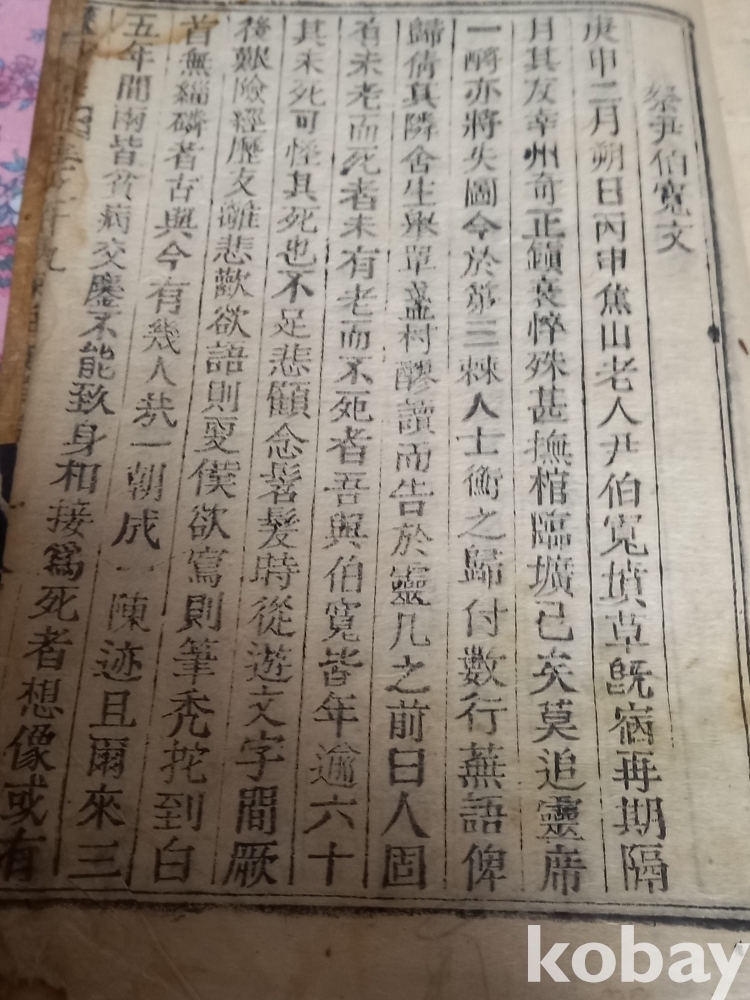 祭尹伯寬文
庚申二月朔日丙申焦山老人尹伯寬墳草既宿再期隔
月其友幸州奇正鎭衰悴殊甚撫棺臨壙已矣莫追靈席
一酹亦將失圖今於第三棘人士衡之歸付數行蕪語俾
歸倩其隣舍生舉單盃村醪讀而告於靈几之前曰人固
有未老而死者未有老而不死者吾與伯寬皆年逾六十
其未死可怪其死也不足悲顧念髫髮時從遊文字間厥
後艱險經歷支離悲歡欲語則更僕欲寫則筆禿挖到白
首無緇磷者古與今有幾人哉一朝成一陳迹且爾來三
五年間兩皆貧病交鏖不能致身相接爲死者想像或有
kobay